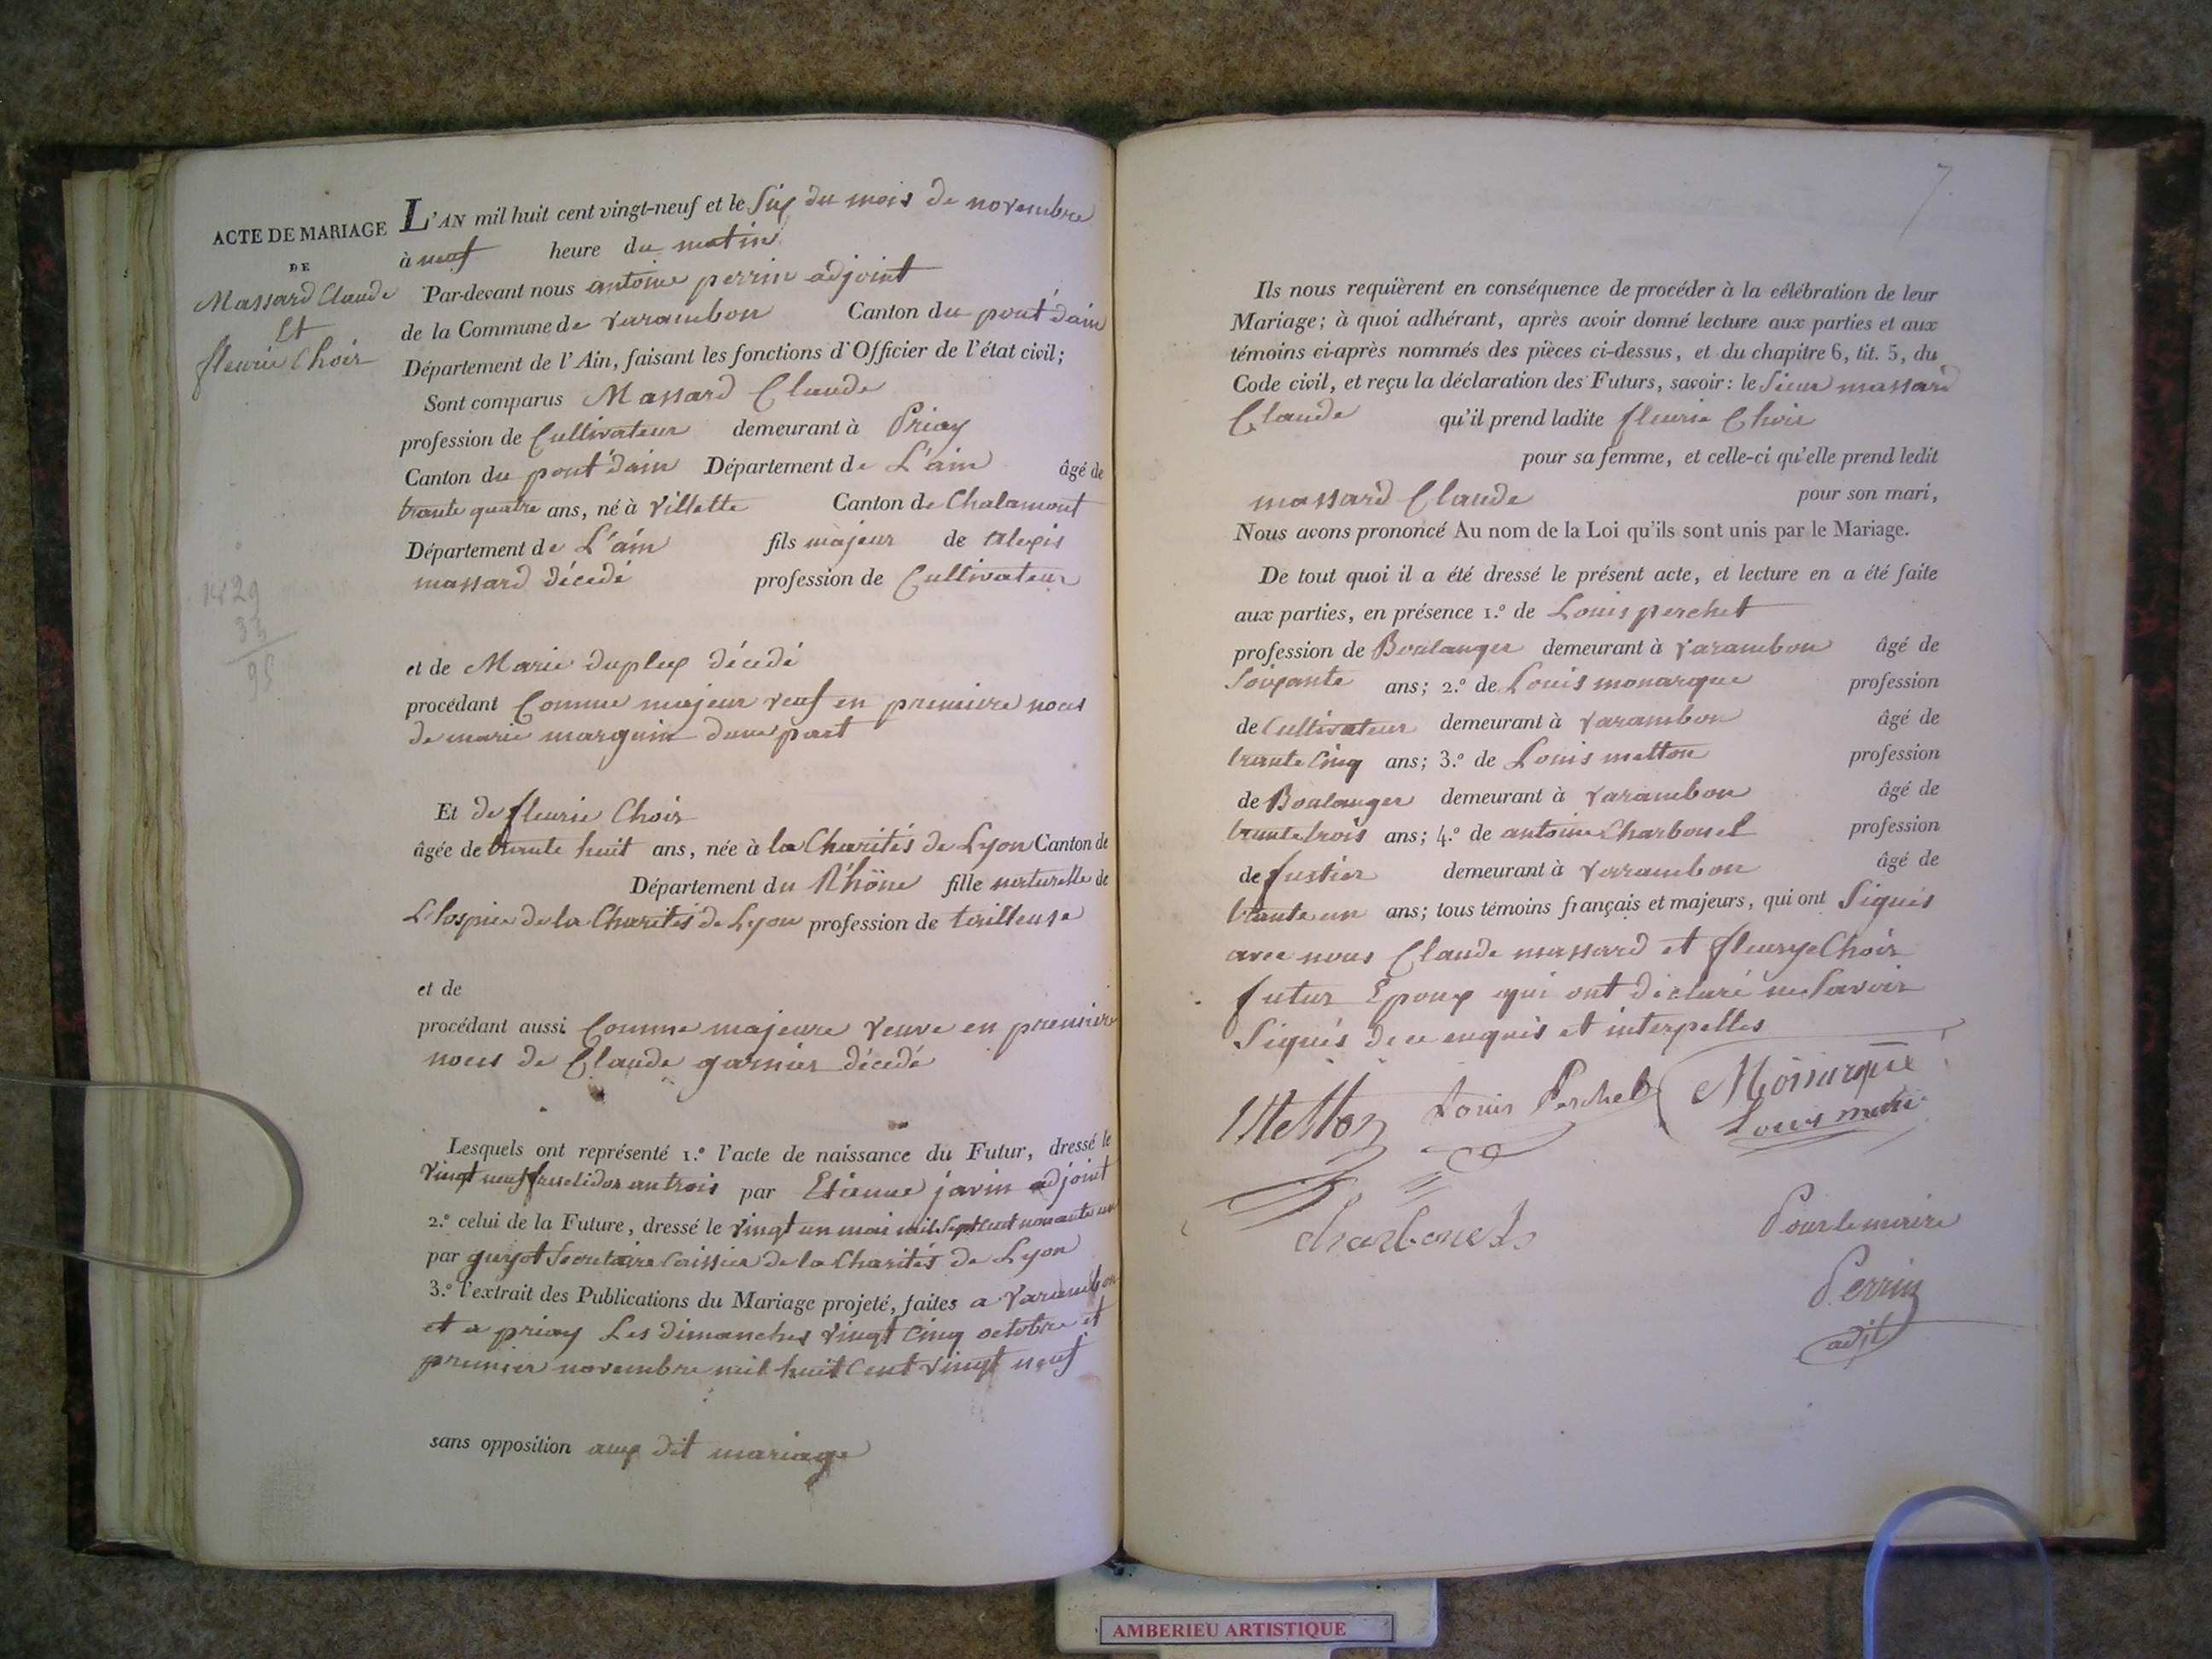 ACTE DE MARIAGE
DE
Massard Claude
Et
fleurie Choir
1829
33
95
L'AN mil huit cent vingt-neuf et le Six du mois de novembre
à neuf heure du matin
Par-devant nous antoine perrin adjoint
de la Commune de varambon Canton du pont d'ain
Département de l'Ain, faisant les fonctions d'Officier de l'état civil;
Sont comparus Massard Claude
profession de Cultivateur demeurant à Priay
Canton du pont d'ain Département de L'ain âgé de
trante quatre ans, né à villette Canton de Chalamont
Département de L'ain fils majeur de Alexis
massard décédé profession de Cultivateur
et de Marie duplex décédé
procédant Comme majeur veuf en premiere noces
de marie marguin dune part
Et de fleurie Choir
âgée de trante huit ans, née à la Charités de Lyon Canton de
Département du Rhöne fille naturelle de
L'hospice de la Charités de Lyon profession de tailleuse
et de
procédant aussi Comme majeure veuve en premiere
noces de Claude garnier décédé
Lesquels ont représenté 1.º l'acte de naissance du Futur, dressé le
vingt neuf fructidor an trois par Etienne javin adjoint
2.º celui de la Future, dressé le vingt un mai mil Sept cent nonante un
par guyot Secretaire Caissier de la Charités de Lyon
3.º l'extrait des Publications du Mariage projeté, faites a varambon
et a priay Les dimanches vingt Cinq octobre et
premier novembre mil huit Cent vingt neuf
sans opposition aux dit mariage
7
Ils nous requièrent en conséquence de procéder à la célébration de leur
Mariage; à quoi adhérant, après avoir donné lecture aux parties et aux
témoins ci-après nommés des pièces ci-dessus, et du chapitre 6, tit. 5, du
Code civil, et reçu la déclaration des Futurs, savoir: le Sieur massard
Claude qu'il prend ladite fleurie Choir
pour sa femme, et celle-ci qu'elle prend ledit
massard Claude pour son mari,
Nous avons prononcé Au nom de la Loi qu'ils sont unis par le Mariage.
De tout quoi il a été dressé le présent acte, et lecture en a été faite
aux parties, en présence 1.º de Louis perchet
profession de Boulanger demeurant à varambon âgé de
Soixante ans; 2.º de Louis monarque profession
de Cultivateur demeurant à varambon âgé de
trante Cinq ans; 3.º de Louis metton profession
de Boulanger demeurant à varambon âgé de
trante trois ans; 4.º de antoine Charbonel profession
de fustier demeurant à varambon âgé de
trante un ans; tous témoins français et majeurs, qui ont Signés
avec nous Claude massard et fleurye Choir
futur Epoux qui ont déclaré ne Savoir
Signés de ce enquis et interpellés
Metton Louis Perchet Monarque
Louis
Charbonel
Pour le maire
Perrin
adjt
AMBERIEU ARTISTIQUE